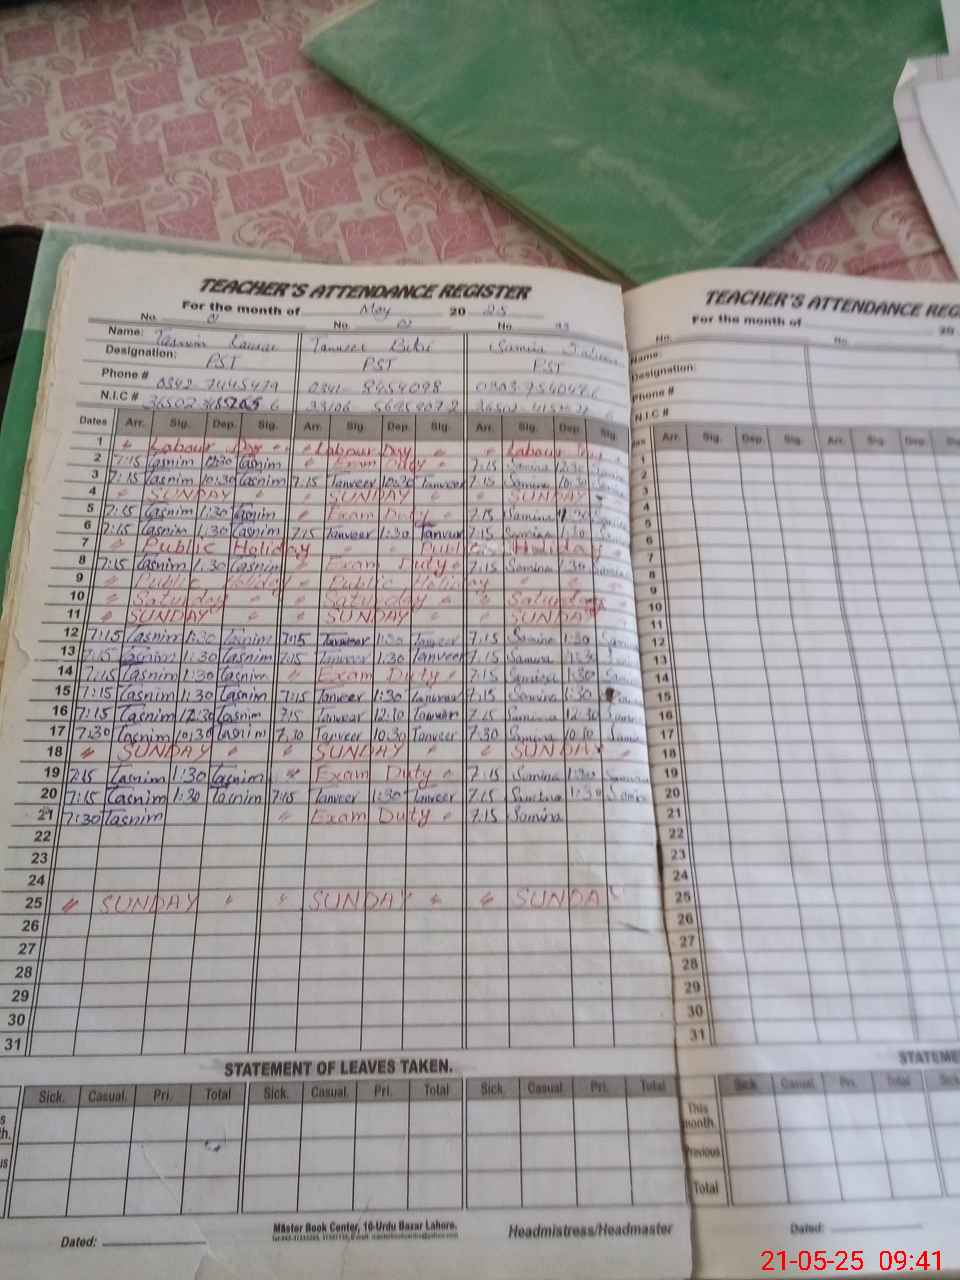 TEACHER'S ATTENDANCE REGISTER
For the month of May 2025
No. 01 No. 02 No. 03
Name: Tasnim Kausar Tanveer Bibi Samina
Designation: PST PST PST
Phone # 0342 7445479 0341 8454098 0303
N.I.C # 36502 33106
Dates Arr. Sig. Dep. Sig. Arr. Sig. Dep. Sig. Arr. Sig. Dep. Sig.
1 〃 Labour Day 〃 〃 Labour Day 〃 〃 Labour Day
2 7:15 Tasnim 12:30 Tasnim 〃 Exam Duty 〃 7:15 Samina 12:30 Samina
3 7:15 Tasnim 10:30 Tasnim 7:15 Tanveer 10:30 Tanveer 7:15 Samina 10:30 Samina
4 〃 SUNDAY 〃 〃 SUNDAY 〃 〃 SUNDAY 〃
5 7:15 Tasnim 1:30 Tasnim 〃 Exam Duty 〃 7:15 Samina 1:30 Samina
6 7:15 Tasnim 1:30 Tasnim 7:15 Tanveer 1:30 Tanveer 7:15 Samina 1:30 Samina
7 〃 Public Holiday 〃 〃 Public Holiday 〃
8 7:15 Tasnim 1:30 Tasnim 〃 Exam Duty 〃 7:15 Samina 1:30 Samina
9 〃 Public Holiday 〃 Public Holiday 〃 〃 〃
10 〃 Saturday 〃 〃 Saturday 〃 〃 Saturday 〃
11 〃 SUNDAY 〃 〃 SUNDAY 〃 〃 SUNDAY 〃
12 7:15 Tasnim 1:30 Tasnim 7:15 Tanveer 1:30 Tanveer 7:15 Samina 1:30 Samina
13 7:15 Tasnim 1:30 Tasnim 7:15 Tanveer 1:30 Tanveer 7:15 Samina 1:30 Samina
14 7:15 Tasnim 1:30 Tasnim 〃 Exam Duty 〃 7:15 Samina 1:30 Samina
15 7:15 Tasnim 1:30 Tasnim 7:15 Tanveer 1:30 Tanveer 7:15 Samina 1:30 Samina
16 7:15 Tasnim 12:30 Tasnim 7:15 Tanveer 12:30 Tanveer 7:15 Samina 12:30 Samina
17 7:30 Tasnim 10:30 Tasnim 7:30 Tanveer 10:30 Tanveer 7:30 Samina 10:30 Samina
18 〃 SUNDAY 〃 〃 SUNDAY 〃 〃 SUNDAY 〃
19 7:15 Tasnim 1:30 Tasnim 〃 Exam Duty 〃 7:15 Samina 1:30 Samina
20 7:15 Tasnim 1:30 Tasnim 7:15 Tanveer 1:30 Tanveer 7:15 Samina 1:30 Samina
21 7:30 Tasnim 〃 Exam Duty 〃 7:15 Samina
22
23
24
25 〃 SUNDAY 〃 〃 SUNDAY 〃 〃 SUNDAY 〃
26
27
28
29
30
31
STATEMENT OF LEAVES TAKEN.
Sick. Casual. Pri. Total Sick. Casual. Pri. Total Sick. Casual. Pri. Total
Dated:
Master Book Center, 16-Urdu Bazar Lahore.
Headmistress/Headmaster
TEACHER'S ATTENDANCE REG
For the month of 20
No. No.
Name:
Designation:
Phone #
N.I.C #
Arr. Sig. Dep. Sig. Arr. Sig. Dep. Sig.
1
2
3
4
5
6
7
8
9
10
11
12
13
14
15
16
17
18
19
20
21
22
23
24
25
26
27
28
29
30
31
STATEME
Sick. Casual. Pri. Total Sick.
This month.
Previous
Total
Dated:
21-05-25 09:41